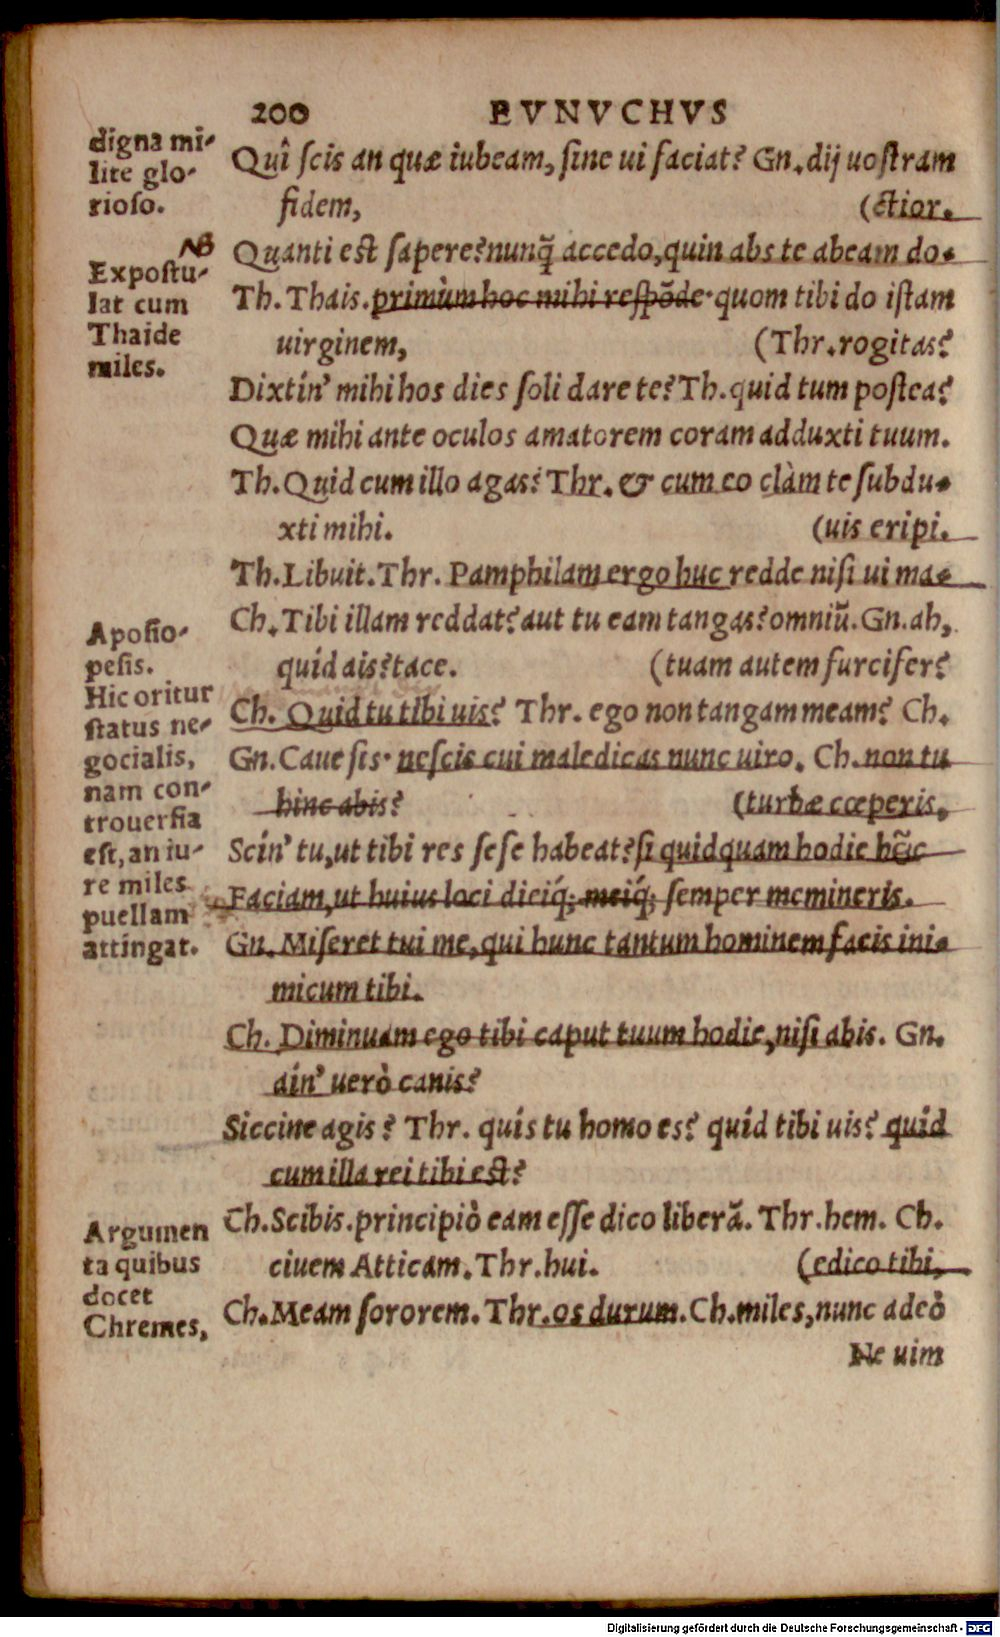 200 EVNVCHVS
digna mi-
lite glo-
rioso.
Quî scis an quæ iubeam, sine ui faciat? Gn. dij uostram
fidem, (ctior.
NB
Quanti est sapere? nunq̃ accedo, quin abs te abeam do-
Expostu-
lat cum
Thaide
miles.
Th. Thais. primùm hoc mihi respõde· quom tibi do istam
uirginem, (Thr. rogitas?
Dixtín' mihi hos dies soli dare te? Th. quid tum postea?
Quæ mihi ante oculos amatorem coram adduxti tuum.
Th. Quid cum illo agas? Thr. & cum eo clàm te subdu-
xti mihi. (uis eripi.
Th. Libuit. Thr. Pamphilam ergo huc redde nisi ui ma-
Ch. Tibi illam reddat? aut tu eam tangas? omniũ. Gn. ah,
Aposio-
pesis.
quid ais? tace. (tuam autem furcifer?
Hic oritur
status ne-
gocialis,
nam con-
trouersia
est, an iu-
re miles
puellam
attingat.
Ch. Quid tu tibi uis? Thr. ego non tangam meam? Ch.
Gn. Caue sis· nescis cui maledicas nunc uiro. Ch. non tu
hinc abis? (turbæ cœperis,
Scín' tu, ut tibi res sese habeat? si quidquam hodie hc̃ic
Faciam, ut huius loci dieiq́; meiq́; semper memineris.
Gn. Miseret tui me, qui hunc tantum hominem facis ini-
micum tibi.
Ch. Diminuam ego tibi caput tuum hodie, nisi abis. Gn.
ain' uerò canis?
Siccine agis? Thr. quis tu homo es? quid tibi uis? quid
cum illa rei tibi est?
Ch. Scibis. principiò eam esse dico liberã. Thr. hem. Ch.
Argumen
ta quibus
docet
Chremes,
ciuem Atticam. Thr. hui. (edico tibi,
Ch. Meam sororem. Thr. os durum. Ch. miles, nunc adeò
Ne uim
Digitalisierung gefördert durch die Deutsche Forschungsgemeinschaft - DFG